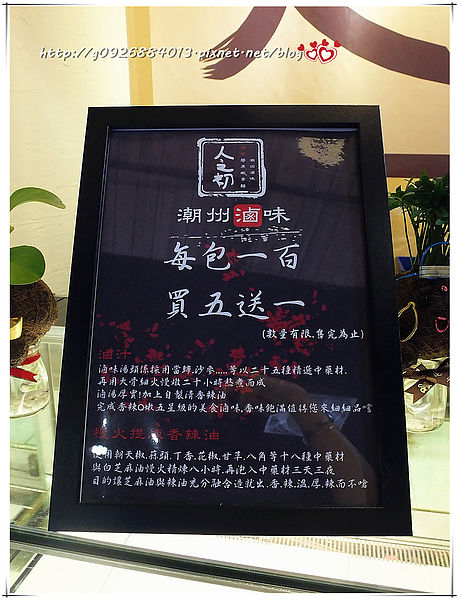 http://g0926884013.pixnet.net/blog
人之初
潮州滷味
每包一百
買五送一
(數量有限.售完為止)
滷汁
滷味湯頭係採用當歸.沙參.....等以二十五種精選中藥材.
再用大骨細火慢燉二十小時熬煮而成
滷湯厚實!加上自製清香辣油
完成香辣Q嫩五星級的美食滷味.香味飽滿值得您來細細品嚐
慢火提煉香辣油
使用朝天椒.蒜頭.丁香.花椒.甘草.八角等十八種中藥材
與白芝麻油慢火精煉八小時.再泡入中藥材三天三夜
目的讓芝麻油與辣油充分融合造就出.香.辣.溫.厚.辣而不嗆